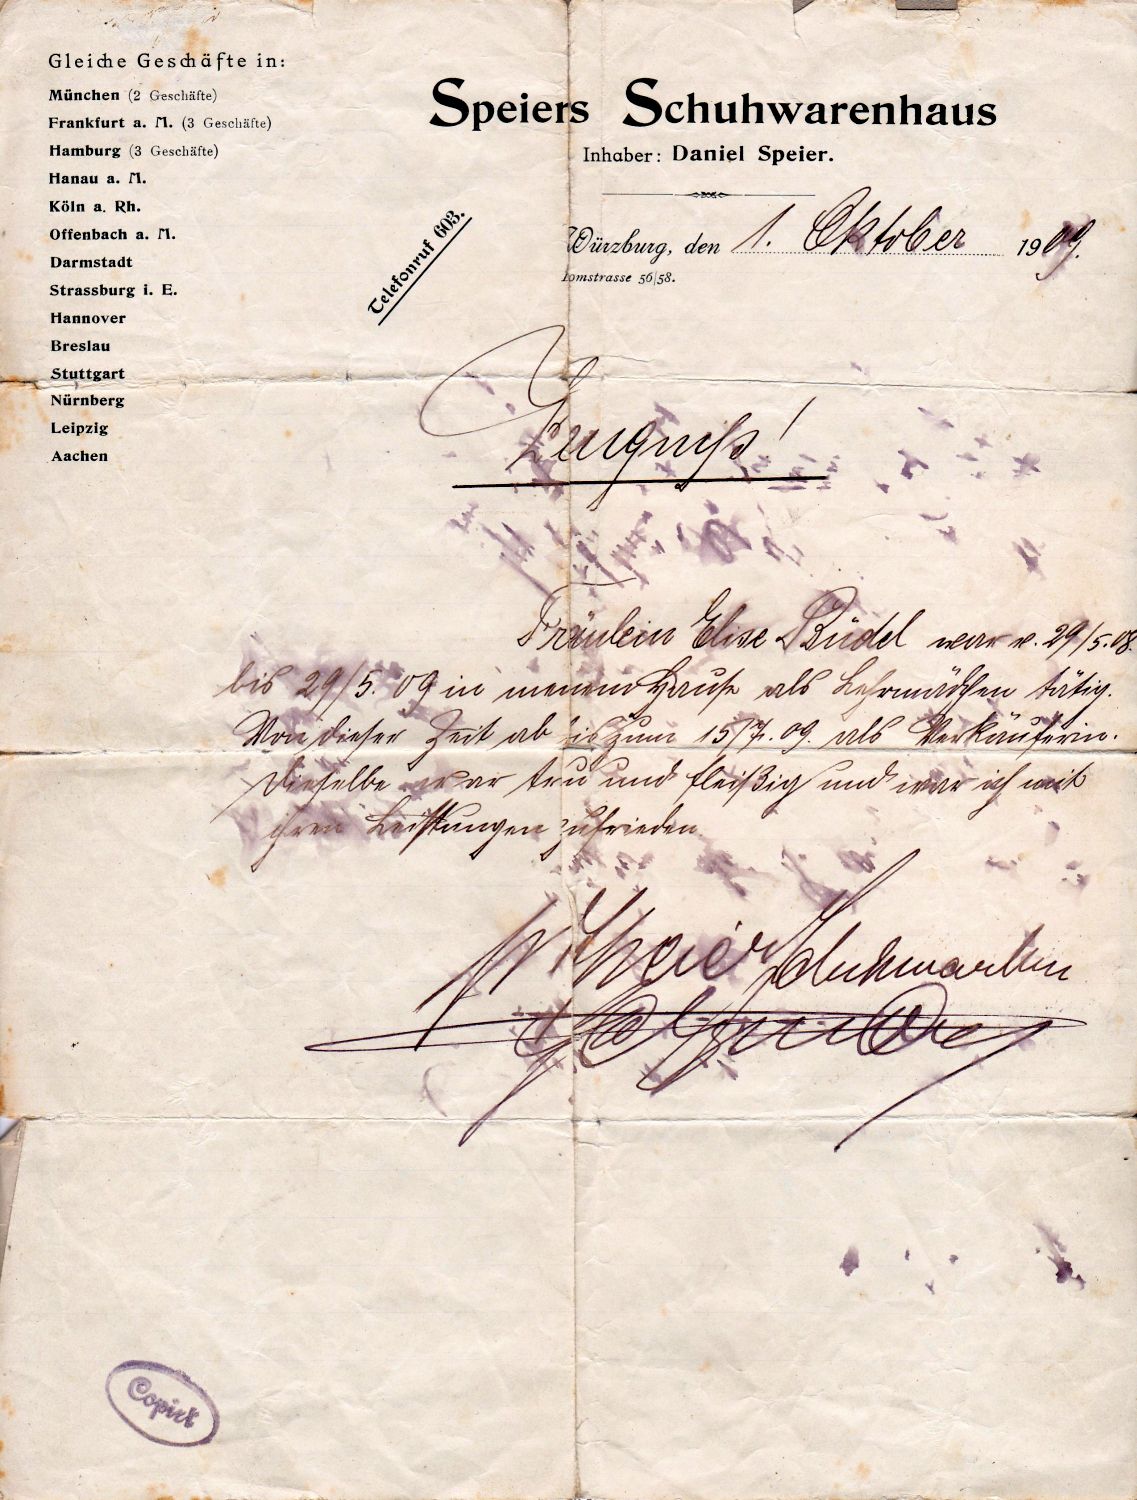 Gleiche Geschäfte in:
München (2 Geschäfte)
Frankfurt a. M. (3 Geschäfte)
Hamburg (3 Geschäfte)
Hanau a. M.
Köln a. Rh.
Offenbach a. M.
Darmstadt
Strassburg i. E.
Hannover
Breslau
Stuttgart
Nürnberg
Leipzig
Aachen
Speiers Schuhwarenhaus
Inhaber: Daniel Speier.
Telefonruf 603.
Würzburg, den 1. Oktober 1909.
Domstrasse 56/58.
Zeugniß!
Fräulein Elise Büdel war v. 29/5.08.
bis 29/5. 09 in meinem Hause als Lehrmädchen tätig.
Von dieser Zeit ab bis zum 15/7. 09. als Verkäuferin.
Dieselbe war treu und fleißig und war ich mit
ihren Leistungen zufrieden.
Speier
Copiert